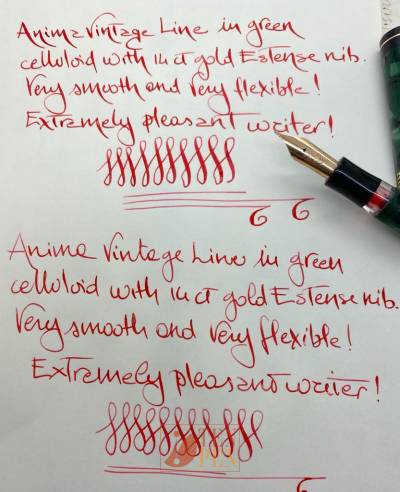 Anima Vintage Line in green
celluloid with 14 ct gold Estense nib.
Very smooth and very flexible!
Extremely pleasant writer!
Anima Vintage Line in green
celluloid with 14 ct gold Estense nib.
Very smooth and very flexible!
Extremely pleasant writer!